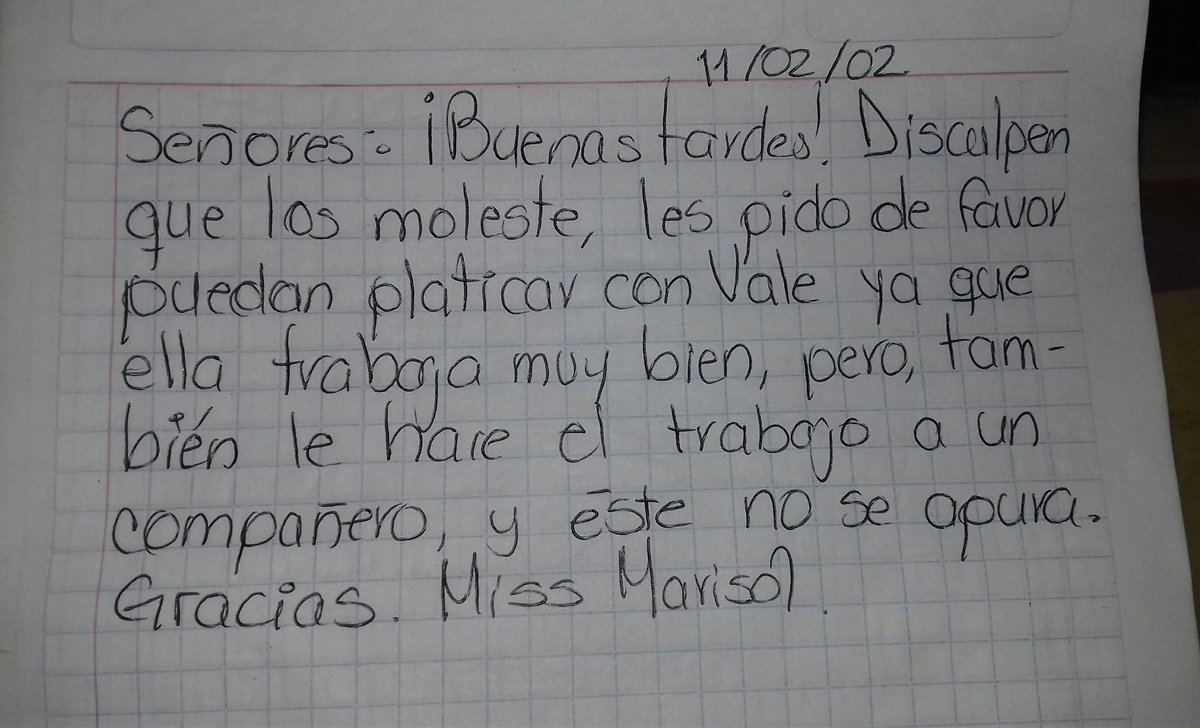 11/02/02.
Señores: ¡Buenas tardes! Disculpen
que los moleste, les pido de favor
puedan platicar con Vale ya que
ella trabaja muy bien, pero, tam-
bién le hace el trabajo a un
compañero, y éste no se apura.
Gracias. Miss Marisol.